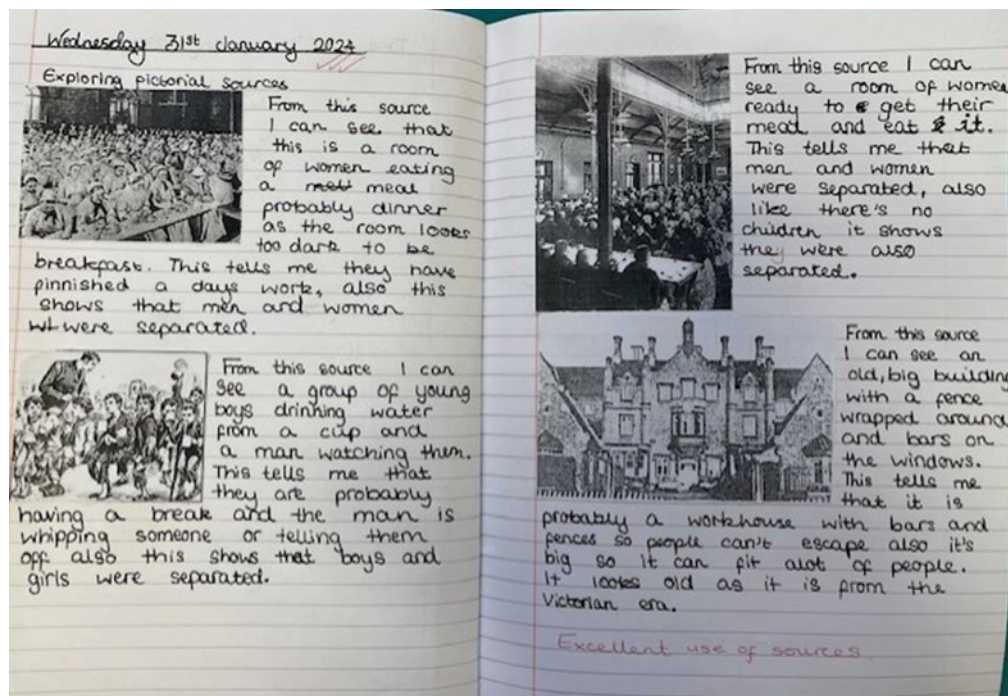 Wednesday 31st January 2024
Exploring pictorial sources
From this source
I can see that
this is a room
of women eating
a melt meal
probably dinner
as the room looks
too dark to be
breakfast. This tells me they have
finnished a days work, also this
shows that men and women
wh were separated.
From this source I can
see a group of young
boys drinning water
from a cup and
a man watching them.
This tells me that
they are probably
having a break and the man is
whipping someone or telling them
off also this shows that boys and
girls were separated.
From this source I can
see a room of women
ready to get their
meal and eat it.
This tells me that
men and women
were separated, also
like there's no
children it shows
they were also
separated.
From this source
I can see an
old, big building
with a fence
wrapped around
and bars on
the windows.
This tells me
that it is
probably a workhouse with bars and
fences so people can't escape also it's
big so it can fit alot of people.
It looks old as it is from the
Victorian era.
Excellent use of sources.